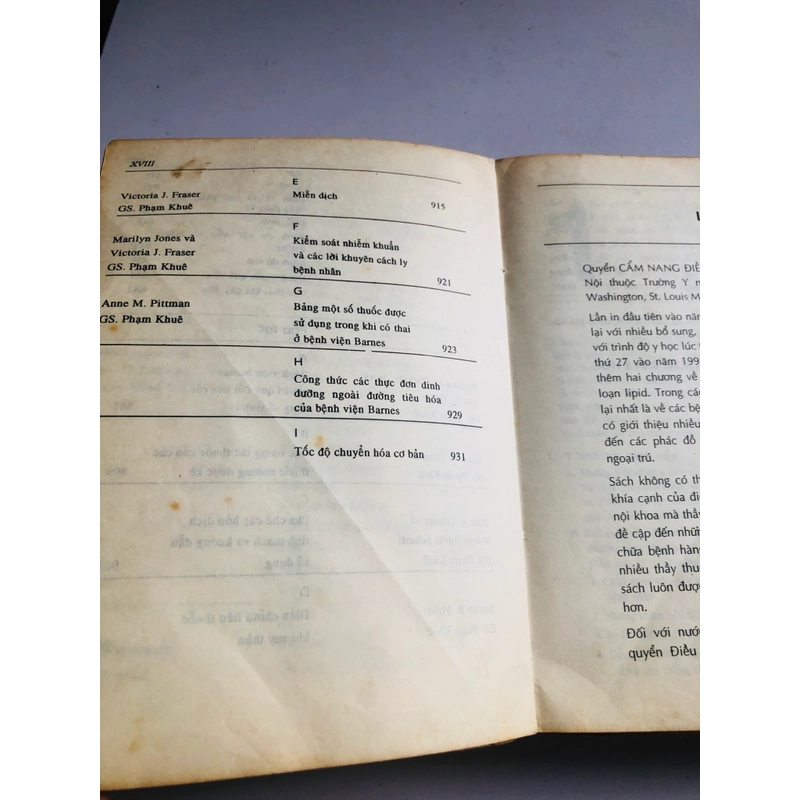 XVIII
E
Victoria J. Fraser Miễn dịch 915
GS. Phạm Khuê
F
Marilyn Jones và Kiểm soát nhiễm khuẩn
Victoria J. Fraser và các lời khuyên cách ly
GS. Phạm Khuê bệnh nhân 921
G
Anne M. Pittman Bảng một số thuốc được
GS. Phạm Khuê sử dụng trong khi có thai
ở bệnh viện Barnes 923
H
Công thức các thực đơn dinh
dưỡng ngoài đường tiêu hóa
của bệnh viện Barnes 929
I
Tốc độ chuyển hóa cơ bản 931
Quyển CẨM NANG ĐIỀ
Nội thuộc Trường Y
Washington, St. Louis M
Lần in đầu tiên vào năm
lại với nhiều bổ sung,
với trình độ y học lúc
thứ 27 vào năm 199
thêm hai chương về
loạn lipid. Trong các
lại nhất là về các bệ
có giới thiệu nhiều
đến các phác đồ
ngoại trú.
Sách không có th
khía cạnh của điề
nội khoa mà thầ
đề cập đến nhữn
chữa bệnh hàn
nhiều thầy thu
sách luôn đượ
hơn.
Đối với nướ
quyển Điều